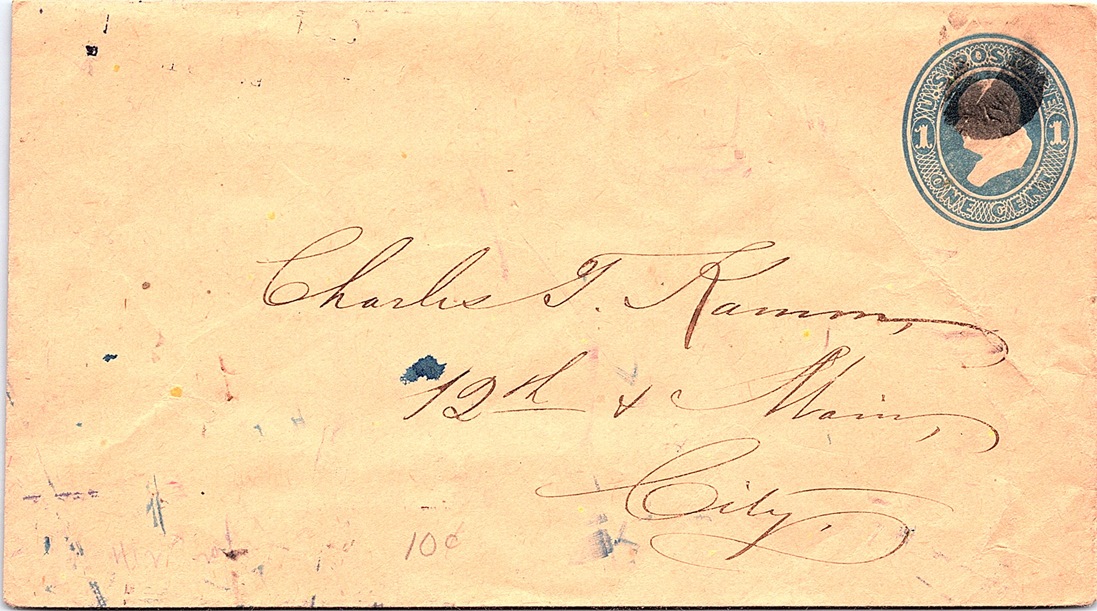 U.S. POSTAGE
1 1
ONE CENT
Charles T. Kamm,
12th & Main,
City,
10¢